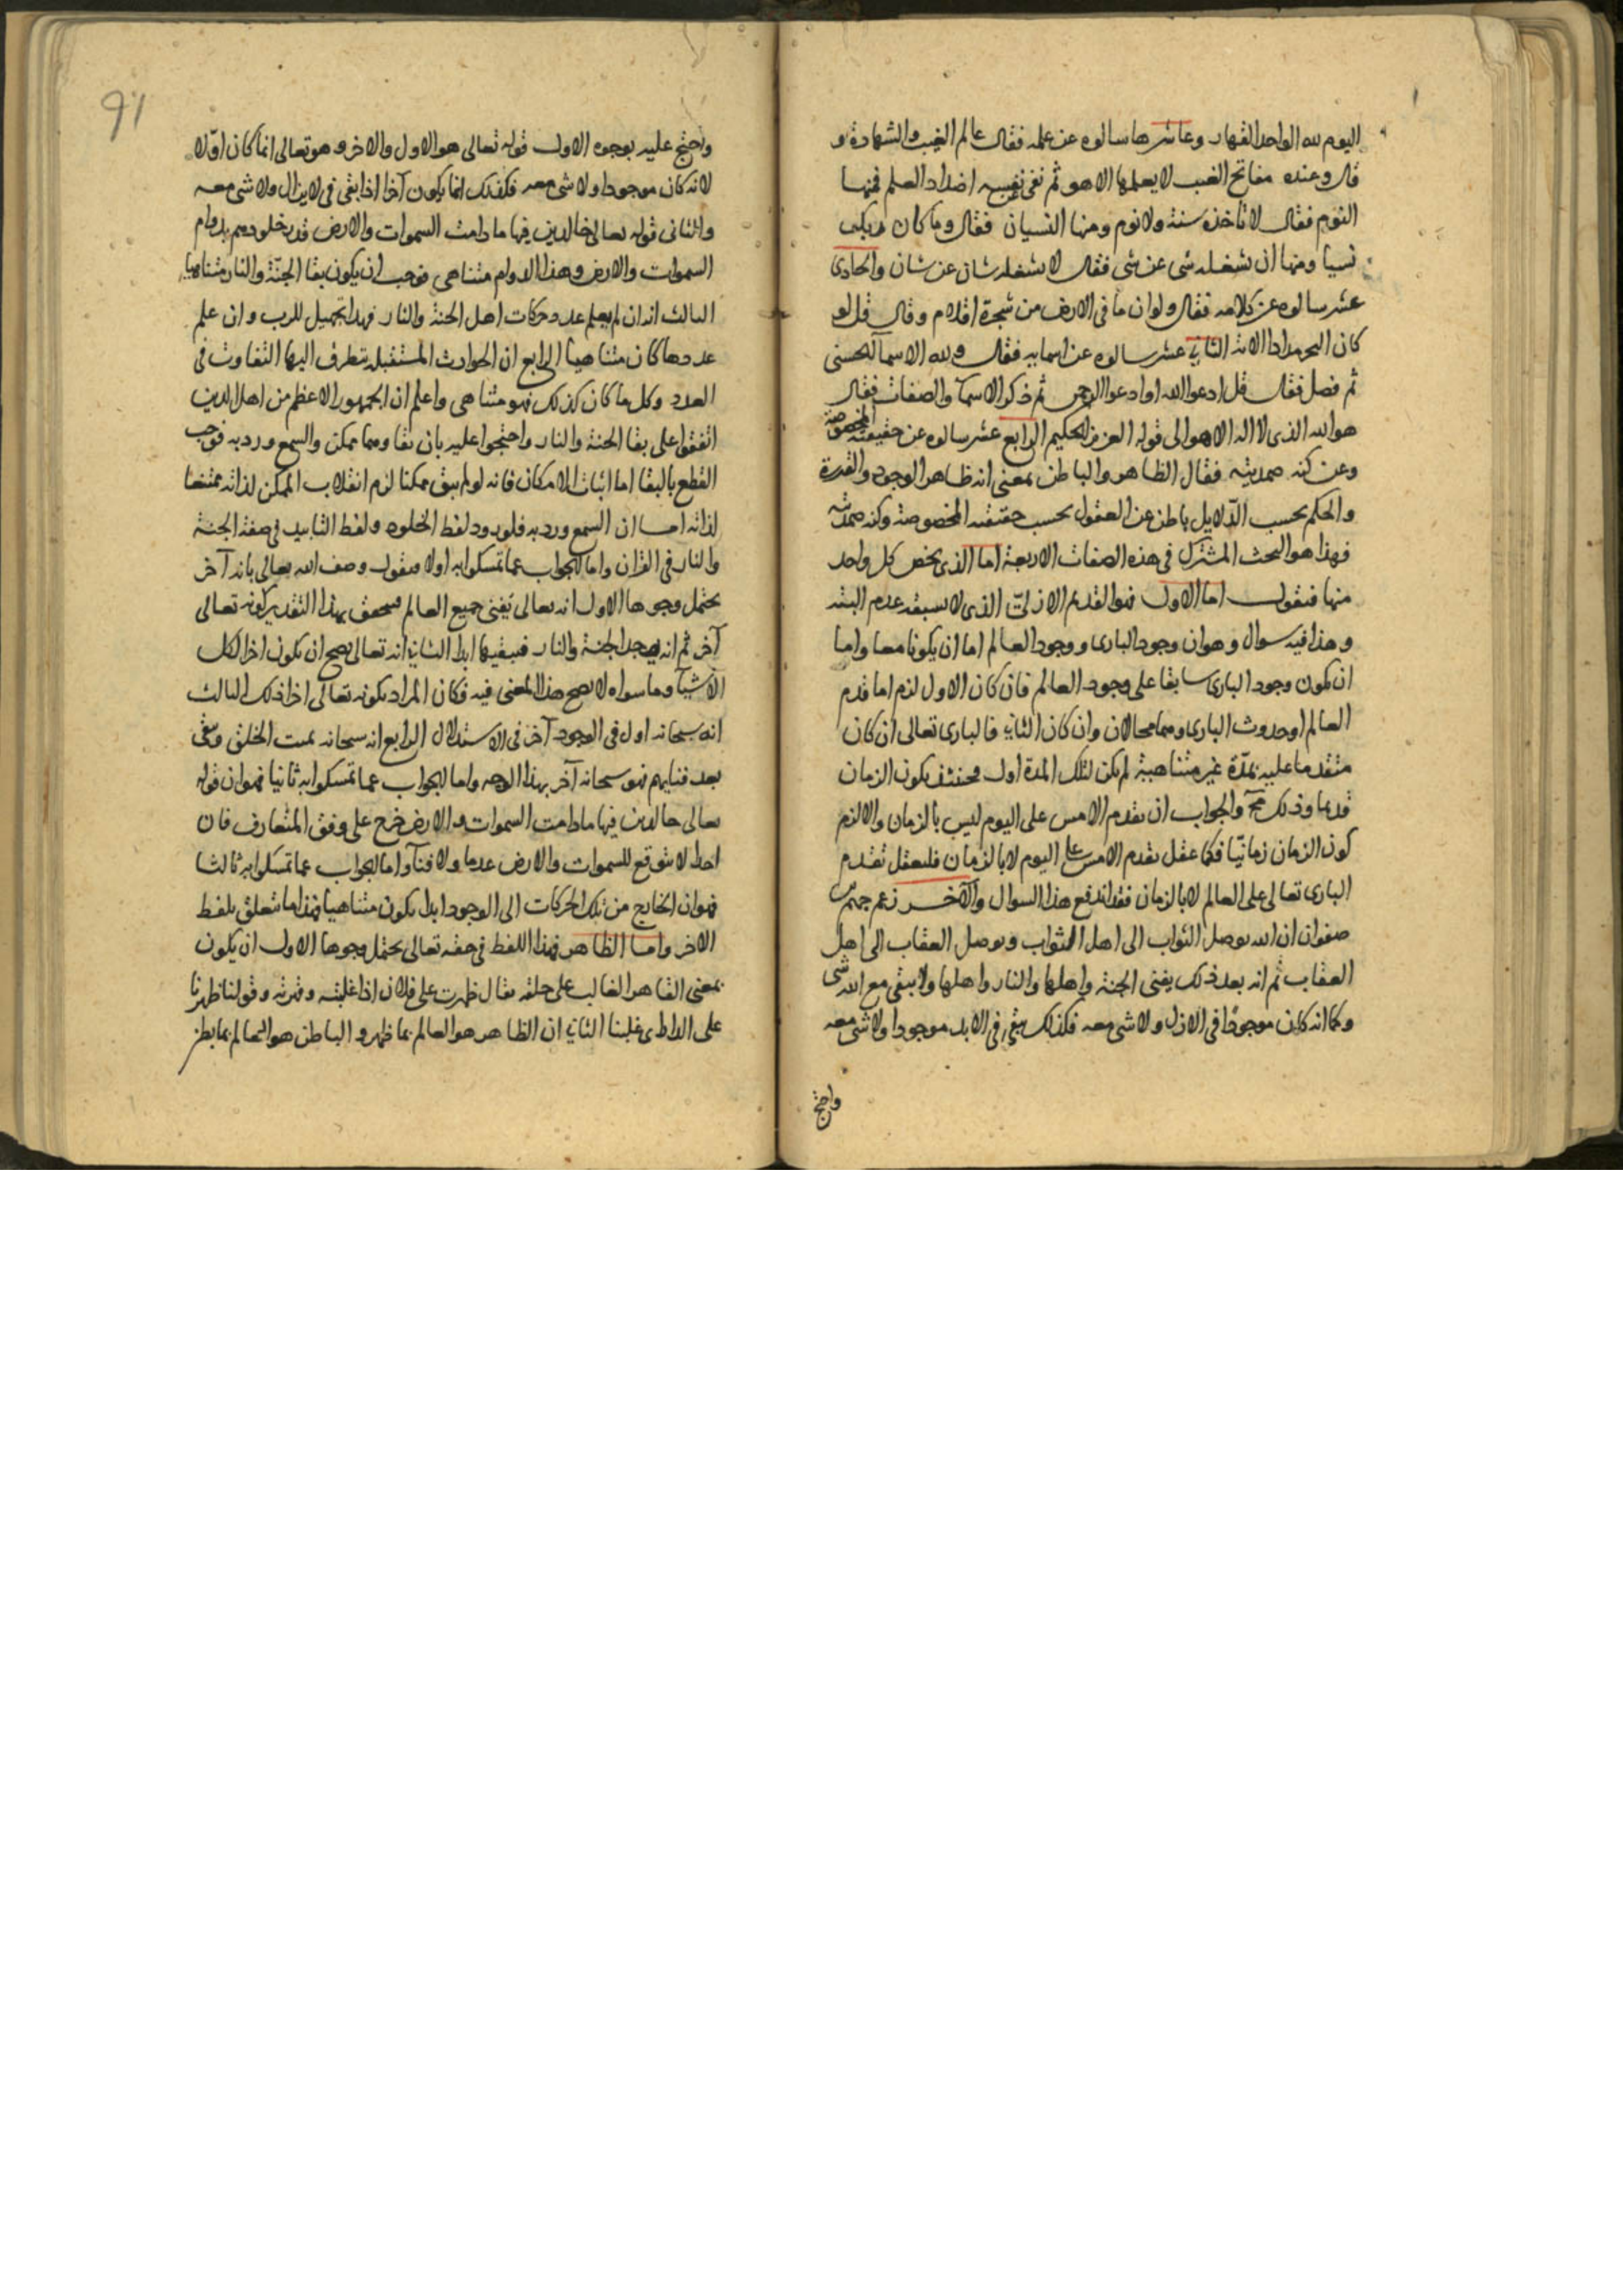 اليوم لله الواحد القهار وعاشرها سالوه عن علمه فقال عالم الغيب والشهادة و
قال وعنده مفاتح الغيب لا يعلمها الا هو ثم نفى نفسه اضداد العلم فمنها
النوم فقال لا تاخذه سنة ولا نوم ومنها النسيان فقال وما كان ربك
نسيا ومنها ان يشغله شي عن شي فقال لا يشغله شان عن شان والحادي
عشر سالوه عن كلامه فقال ولو ان ما في الارض من شجرة اقلام وقال قل لو
كان البحر مدادا الاية الثاني عشر سالوه عن اسمايه فقال ولله الاسمآ الحسنى
ثم فصل فقال قل ادعوا الله او ادعوا الرحمن ثم ذكر الاسمآ والصفات فقال
هو الله الذي لا اله الا هو الى قوله العزيز الحكيم الرابع عشر سالوه عن حقيقته المخصوصة
وعن كنه صمديته فقال الظاهر والباطن بمعنى انه ظاهر الوجود والقدرة
والحكم بحسب الدّلايل باطن عن العقول بحسب حقيقته المخصوصة وكنه صمديته
فهذا هو البحث المشترك في هذه الصفات الاربعة اما الذي يخص كل واحد
منها فنقول اما الاول فهو القديم الازليّ الذي لا يسبقه عدم البتة
وهذا فيه سوال وهو ان وجود الباري ووجود العالم اما ان يكونا معا واما
ان يكون وجود الباري سابقا على وجود العالم فان كان الاول لزم اما قدم
العالم او حدوث الباري وهما محالان وان كان الثاني فالباري تعالى ان كان
متقدما عليه بمدّة غير متناهية لم يكن لتلك المدة اول فحينئذ يكون الزمان
قديما وذلك مح والجواب ان تقدم الامس على اليوم ليس بالزمان والا لزم
كون الزمان زمانيّا فكما عقل تقدم الامس على اليوم لا بالزمان فليعقل تقدم
الباري تعالى على العالم لا بالزمان فقد اندفع هذا السوال والآخر زعم جهم بن
صفوان ان الله يوصل الثواب الى اهل الثواب ويوصل العقاب الى اهل
العقاب ثم انه بعد ذلك يفنى الجنة واهلها والنار واهلها ولا يبقى مع الله شي
وكما انه كان موجودا في الازل ولا شي معه فكذلك يبقى في الابد موجودا ولا شي معه
واحتج
91
واحتج عليه بوجوه الاول قوله تعالى هو الاول والاخر وهو تعالى انما كان اوّلا
لانه كان موجودا ولا شي معه فكذلك انما يكون آخرا اذا بقى في لا يزال ولا شي معه
والثاني قوله تعالى خالدين فيها ما دامت السموات والارض قدر خلودهم بدوام
السموات والارض وهذا الدوام متناهي فوجب ان يكون بقا الجنّة والنار متناهيا
الثالث انه ان لم يعلم عدد حركات اهل الجنة والنار فهذا تجهيل للرب وان علم
عددها كان متناهيا الرابع ان الحوادث المستقبلة يتطرق اليها التفاوت في
العدد وكل ما كان كذلك فهو متناهي واعلم ان الجمهور الاعظم من اهل الدين
اتفقوا على بقا الجنة والنار واحتجوا عليه بان بقاوهما ممكن والسمع ورد به فوجب
القطع بالبقا اما اثبات الامكان فانه لو لم يبق ممكنا لزم انقلاب الممكن لذاته ممتنعا
لذاته اما ان السمع ورد به فلورود لفظ الخلود ولفظ التابيد في صفة الجنة
والنار في القران واما الجواب عما تمسكوا به اولا فنقول وصف الله تعالى بانه آخر
يحتمل وجوها الاول انه تعالى يفنى جميع العالم فيتحقق بهذا التقدير كونه تعالى
آخر ثم انه يوجد الجنة والنار فيبقيها ابدا الثاني انه تعالى يصح ان يكون اخرا لكل
الاشيآ وما سواه لا يصح هذا المعنى فيه فكان المراد بكونه تعالى اخرا ذلك الثالث
انه سبحانه اول في الوجود آخر في الاستدلال الرابع انه سبحانه يميت الخلق ويبقى
بعد فنايهم فهو سبحانه آخر بهذا الوجه واما الجواب عما تمسكوا به ثانيا فهو ان قوله
تعالى خالدين فيها ما دامت السموات والارض خرج على وفق المتعارف فان
احدا لا يتوقع للسموات والارض عدما ولا فنآ واما الجواب عما تمسكوا به ثالثا
فهو ان الخارج من تلك الحركات الى الوجود ابدا يكون متناهيا فهذا ما يتعلق بلفظ
الاخر واما الظاهر فهذا اللفظ في حقه تعالى يحتمل وجوها الاول ان يكون
بمعنى القاهر الغالب على خلقه يقال ظهرت على فلان اذا غلبته وقهرته وقولنا ظهرنا
على غلبنا الثاني ان الظاهر هو العالم بما ظهر و الباطن هو العالم بما بطن